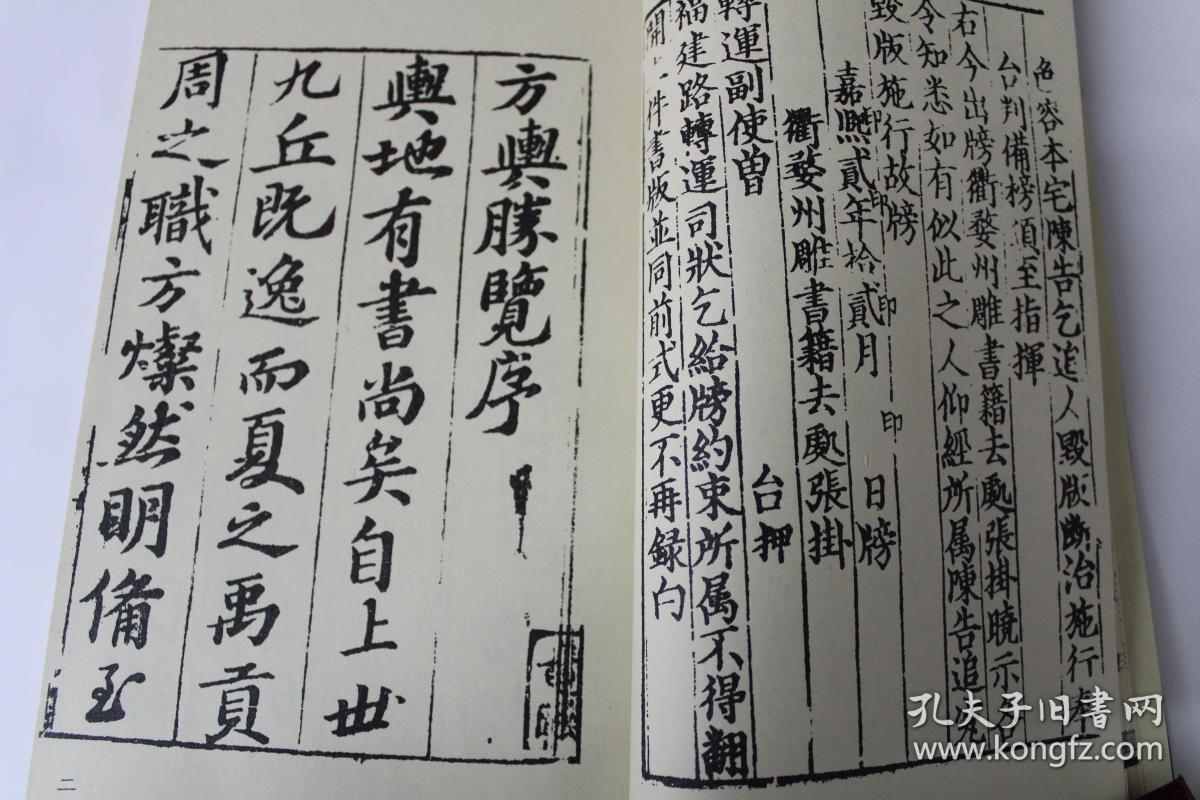 各容本宅陳告乞追人毀版斷治施行奉
台判備榜須至指揮
右今出牓衢婺州雕書籍去處張掛曉示各
令知悉如有似此之人仰經所属陳告追究
毀版施行故牓
嘉熙貳年拾貳月 印 日牓
印
印
印
衢婺州雕書籍去處張掛
轉運副使曾 台押
福建路轉運司狀乞給牓約束所属不得翻
開 件書版並同前式更不再録白
方輿勝覽序
輿地有書尚矣自上世
九丘既逸而夏之禹貢
周之職方燦然明備至
二
孔夫子旧書网
www.kongfz.com